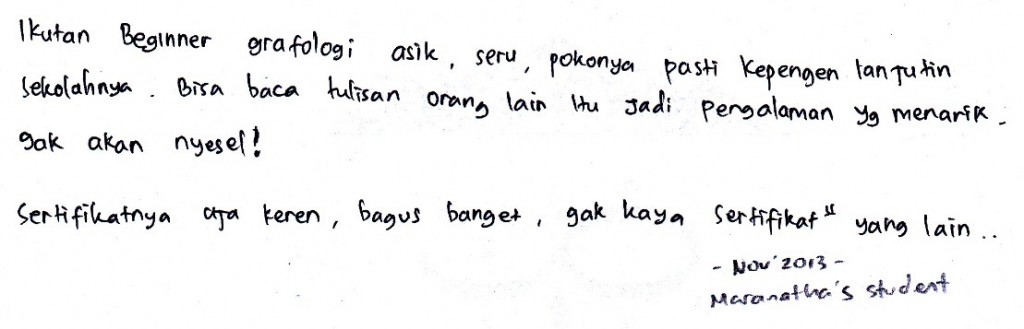 Ikutan Beginner grafologi asik, seru, pokonya pasti kepengen lanjutin
sekolahnya. Bisa baca tulisan orang lain itu jadi pengalaman yg menarik.
gak akan nyesel!
Sertifikatnya aja keren, bagus banget, gak kaya sertifikat" yang lain..
- Nov'2013 -
Maranatha's student